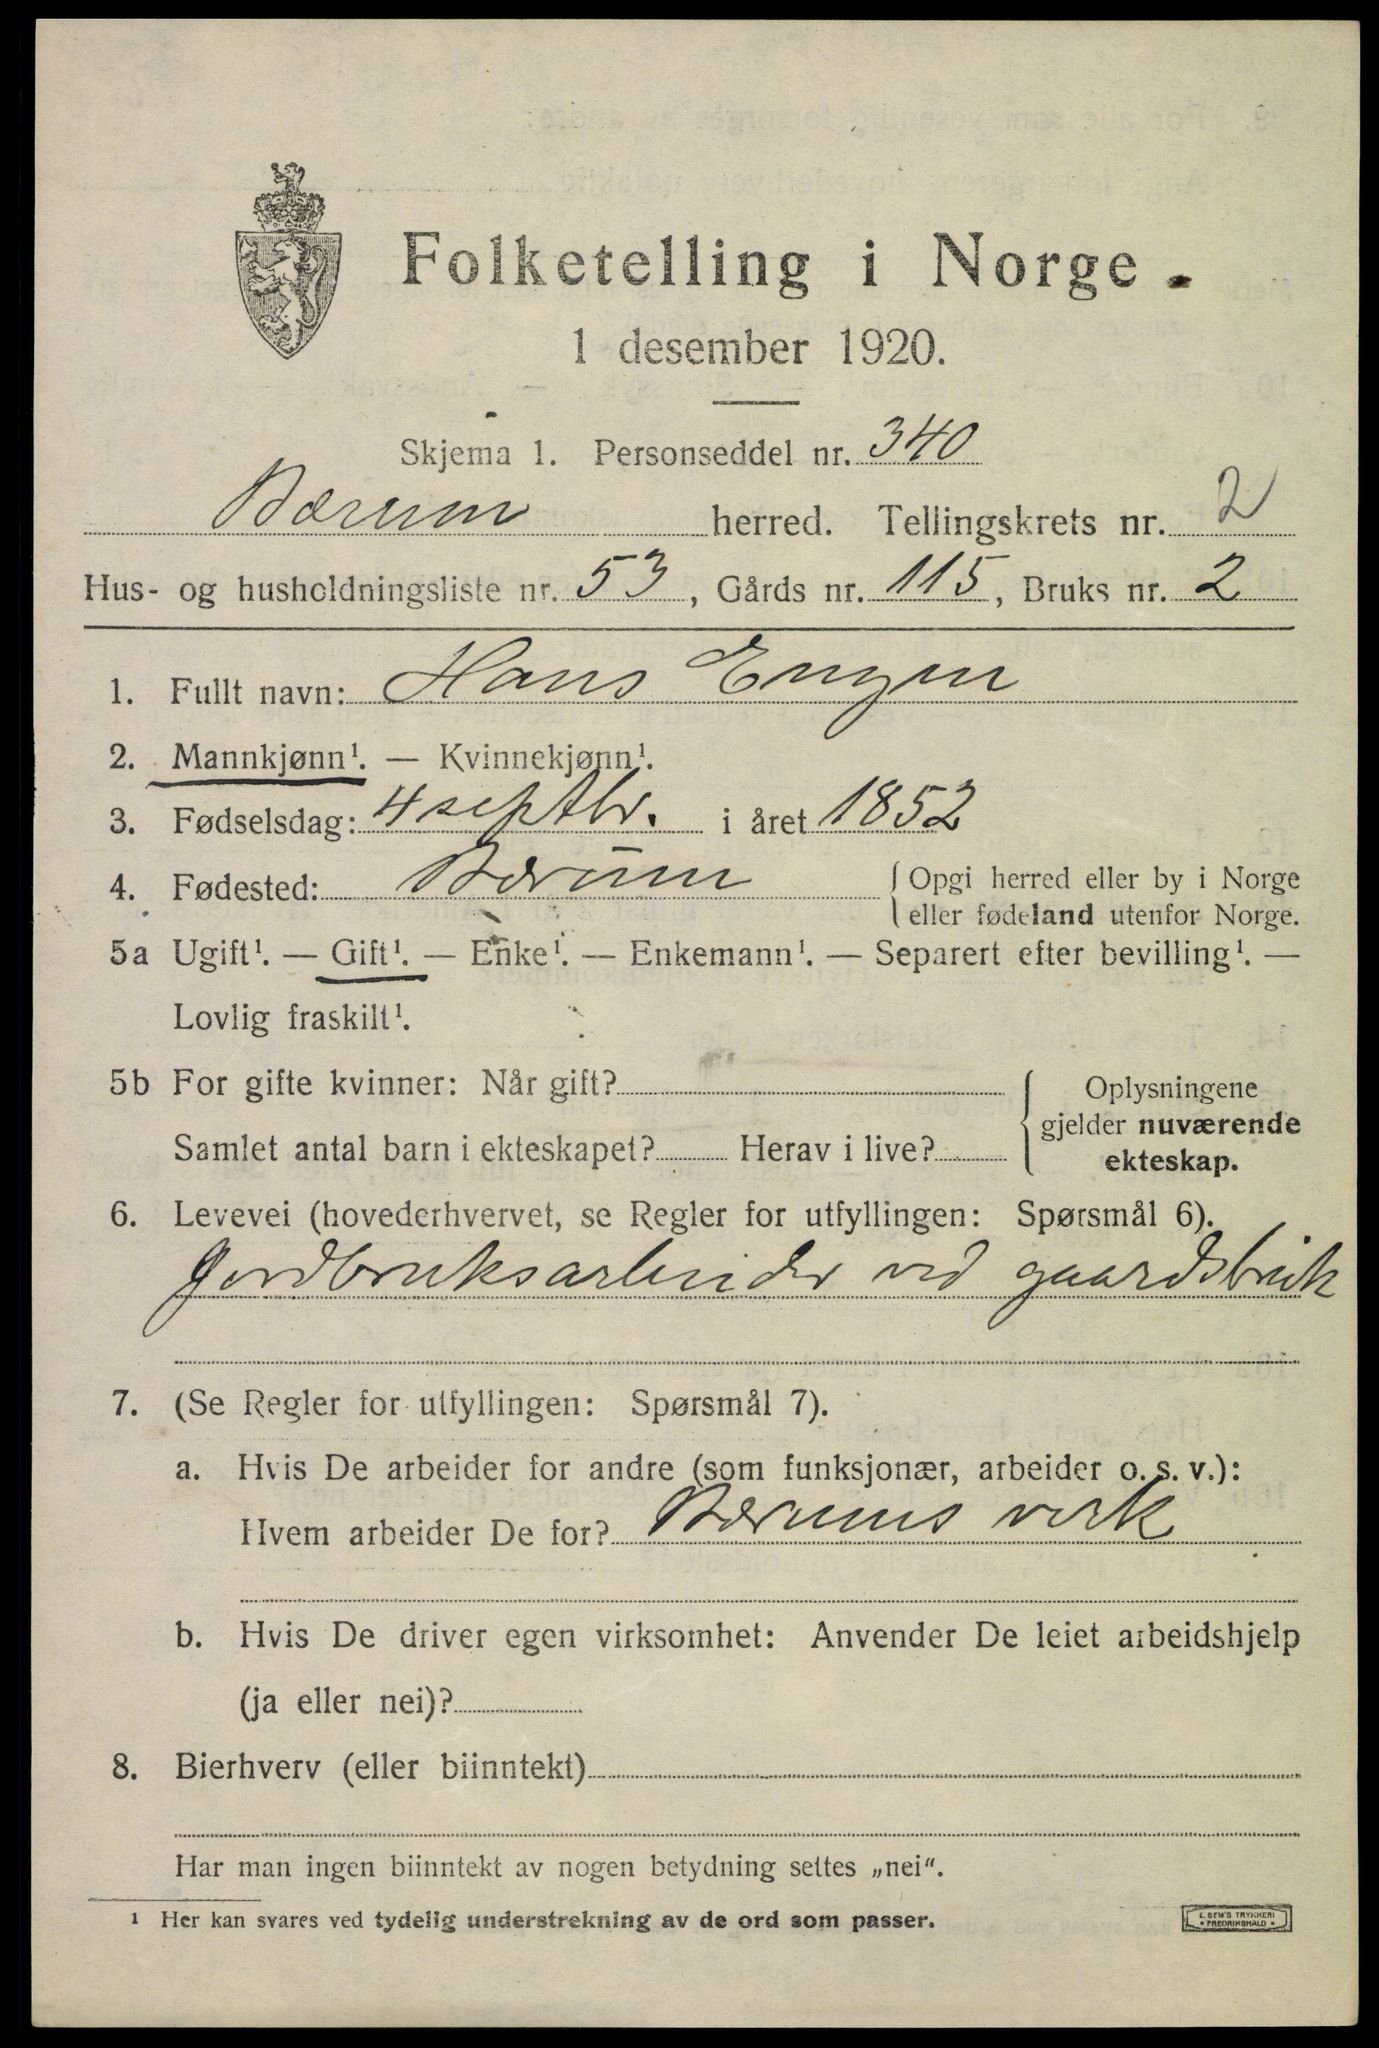 Folketelling i Norge
1 desember 1920.
Skjema 1. Personseddel nr. 340
Bærum herred. Tellingskrets nr. 2
Hus- og husholdningsliste nr. 53, Gårds nr. 115, Bruks nr. 2
1. Fullt navn: Hans Engen
2. Mannkjønn¹. — Kvinnekjønn¹.
3. Fødselsdag: 4 septbr. i året 1852
4. Fødested: Bærum { Opgi herred eller by i Norge
eller fødeland utenfor Norge.
5a Ugift¹. — Gift¹. — Enke¹. — Enkemann¹. — Separert efter bevilling¹. —
Lovlig fraskilt¹.
5b For gifte kvinner: Når gift?
Samlet antal barn i ekteskapet? Herav i live?
{ Oplysningene
gjelder nuværende
ekteskap.
6. Levevei (hovederhvervet, se Regler for utfyllingen: Spørsmål 6).
Jordbruksarbeider ved gaardsbruk
7. (Se Regler for utfyllingen: Spørsmål 7).
a. Hvis De arbeider for andre (som funksjonær, arbeider o. s. v.):
Hvem arbeider De for? Bærums verk
b. Hvis De driver egen virksomhet: Anvender De leiet arbeidshjelp
(ja eller nei)?
8. Bierhverv (eller biinntekt)
Har man ingen biinntekt av nogen betydning settes „nei“.
¹ Her kan svares ved tydelig understrekning av de ord som passer.
E. SEM'S TRYKKERI
• FREDRIKSHALD •